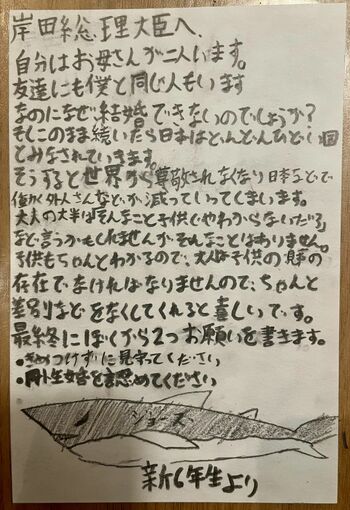 岸田総理大臣へ、
自分はお母さんが二人います。
友達にも僕と同じ人もいます
なのになぜ結婚できないのでしょうか?
もしこのまま続いたら日本はどんどんひどい国
とみなされていきます。
そうすると世界から尊敬されなくなり日本などで
働く外人さんなどが減っていってしまいます。
大人の大半は「そんなこと子供じゃわからないだろ」
など言うかもしれませんがそんなことはありません。
子供もちゃんとわかるので、大人は子供の
存在でなければなりませんので、ちゃんと
差別などをなくしてくれると喜しいです。
最終に ぼくから2つお願いを書きます。
・きめつけずに見守ってください
・同生婚を認めてください
ジョーズ
新6年生より